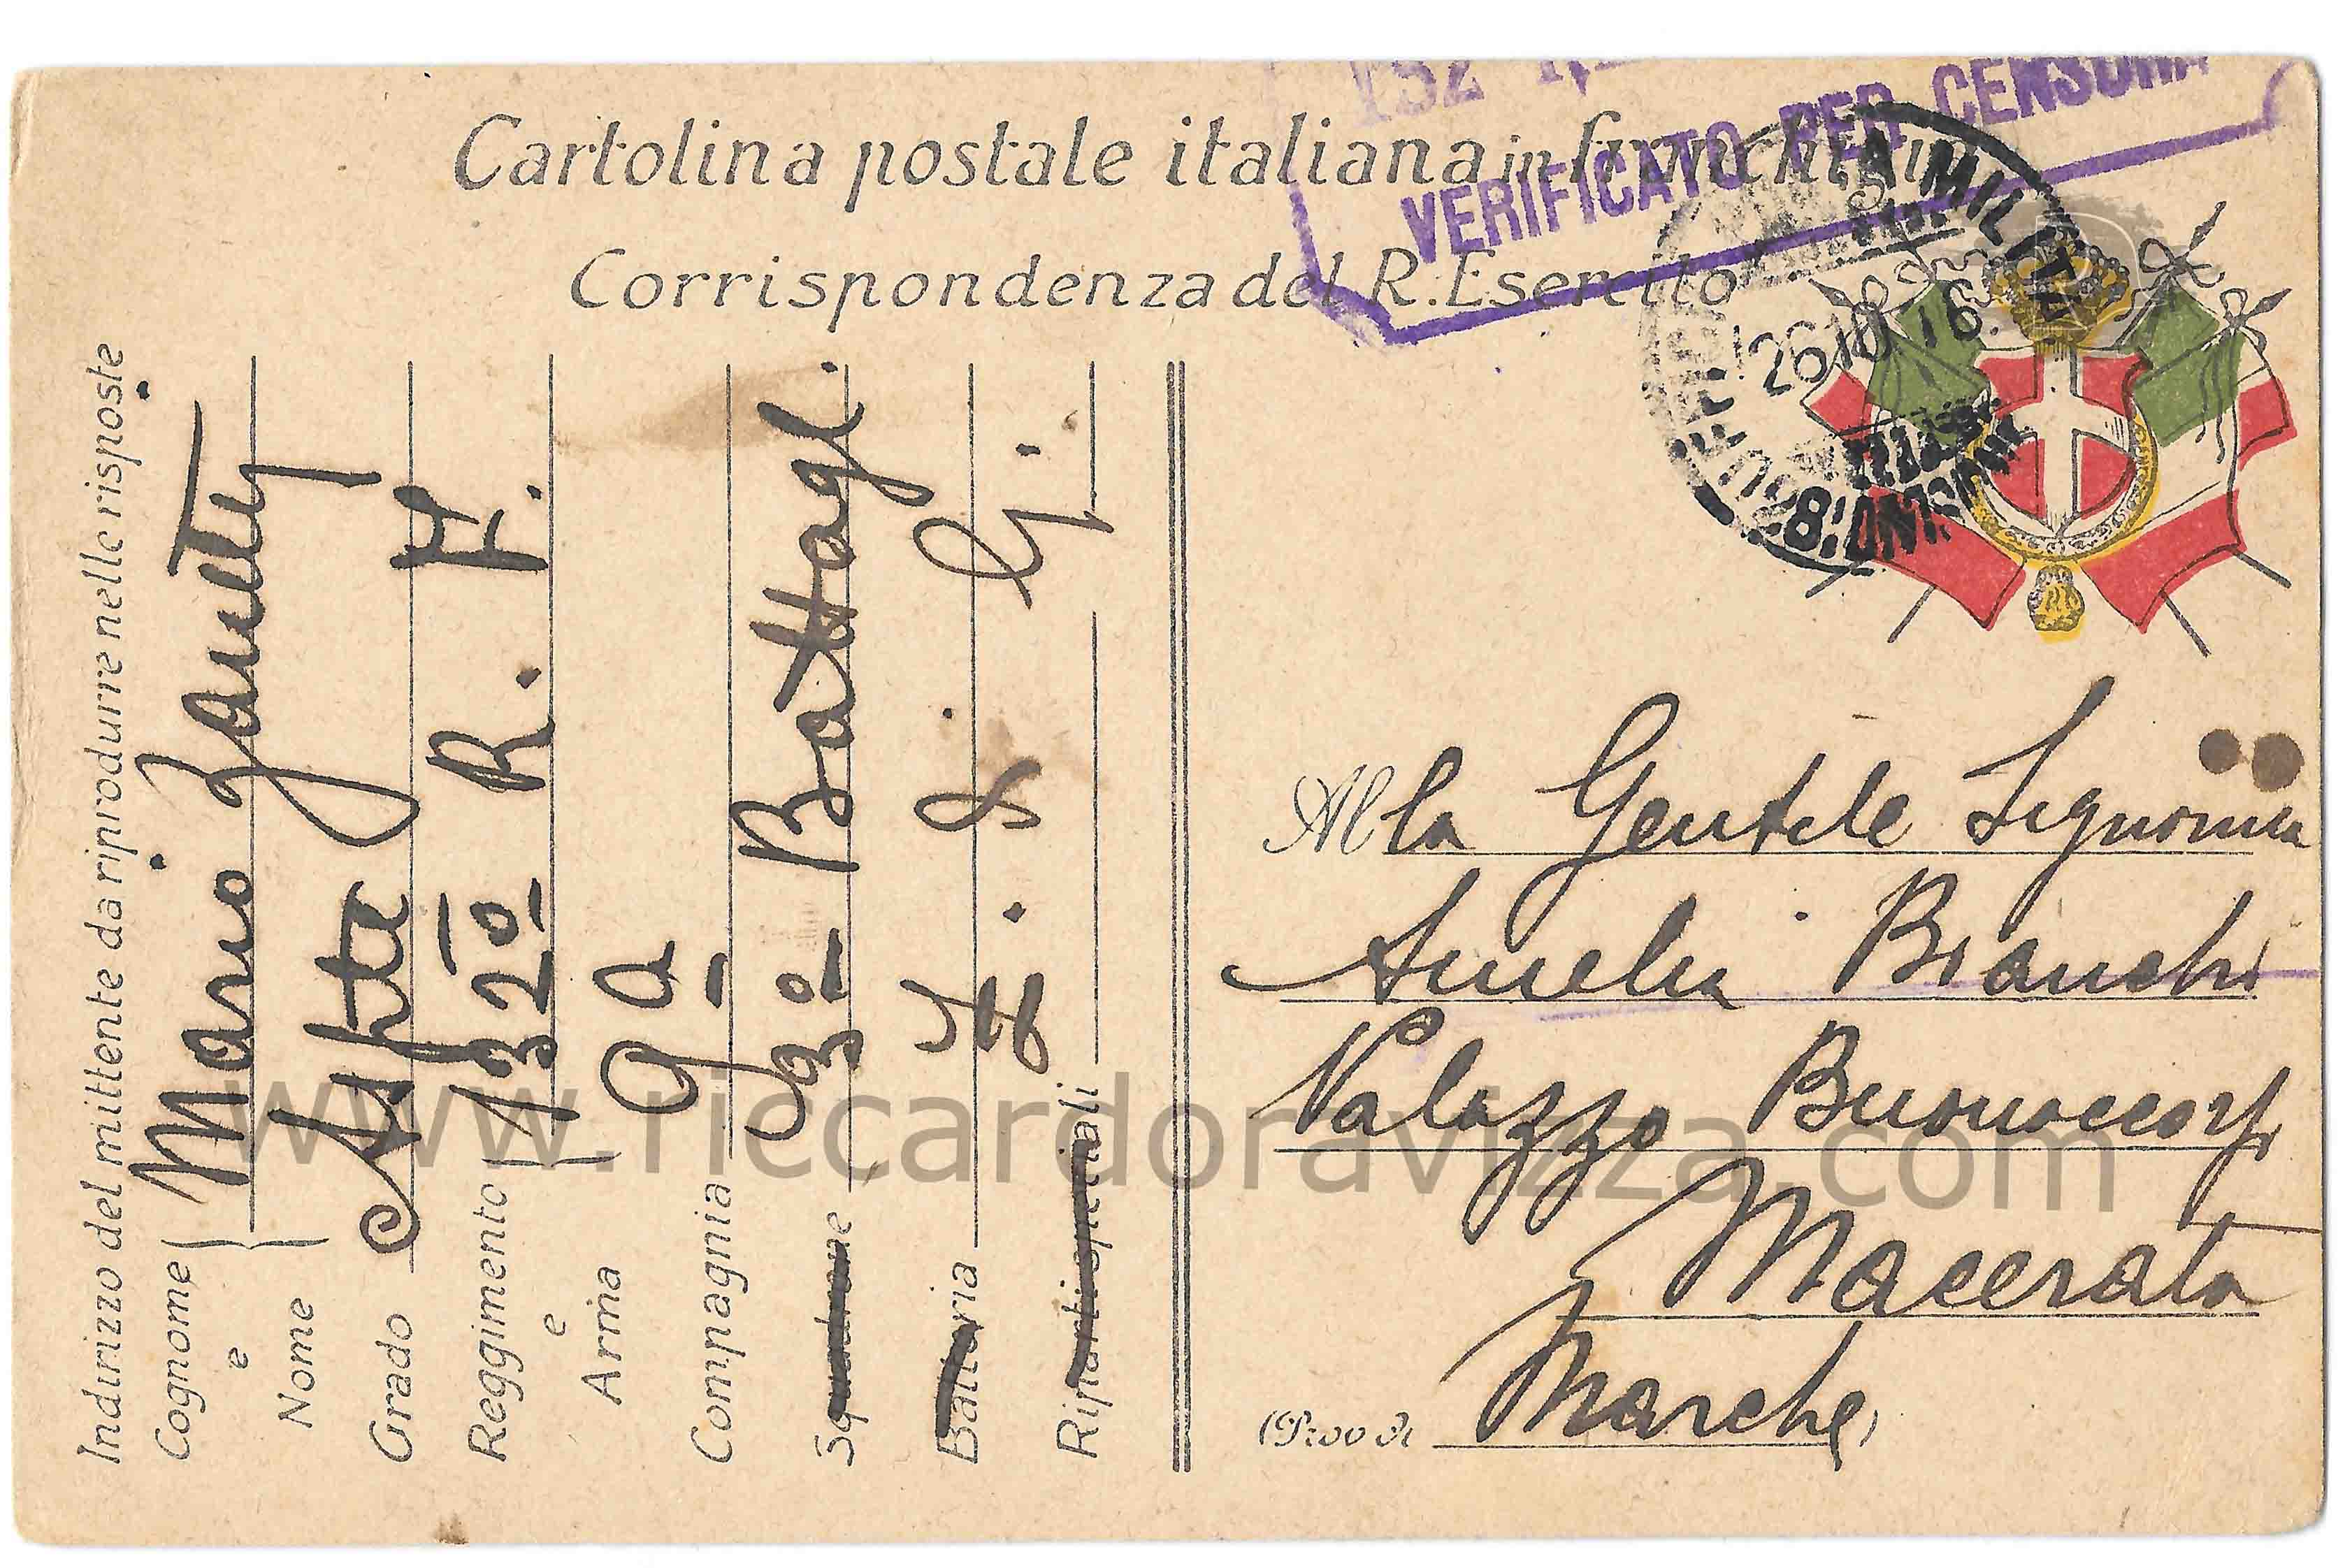 132 R
VERIFICATO PER CENSURA
Cartolina postale italiana in franchigia
Corrispondenza del R. Esercito
A MILITA
26.10.16
DIVISIONE
Indirizzo del mittente da riprodurre nelle risposte
Cognome e Nome Mario Zanetty
Grado Aspte
Reggimento e Arma 132º R. F.
Compagnia 9ª
Squadrone 3º Battagl.
Batteria Z. d. G.
Riparti speciali
Alla Gentile Signorina
Amelia Bianchi
Palazzo Buonaccorsi
Macerata
(Prov di Marche)
www.riccardoravizza.com